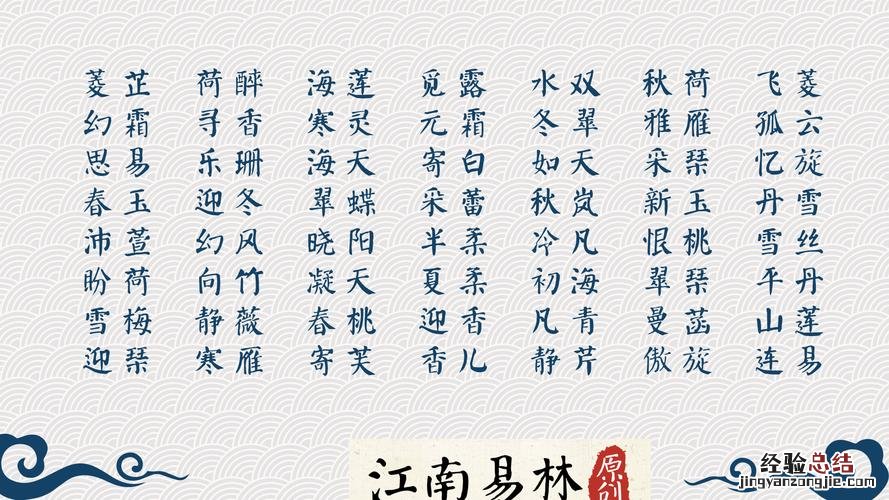 菱芷 荷醉 海莲 觅露 水双 秋荷 飞菱
幻霜 寻香 寒灵 元霜 冬翠 雅雁 孤云
思易 乐珊 海天 寄白 如天 采琴 忆旋
春玉 迎冬 翠蝶 采蕾 秋岚 新玉 丹雪
沛萱 幻风 晓阳 半柔 冷凡 恨桃 雪丝
盼荷 向竹 凝天 夏柔 初海 翠琴 平丹
雪梅 静薇 春桃 迎香 凡青 曼菡 山莲
迎琴 寒雁 寄芙 香儿 静芹 傲旋 连易
江南易林
原创
经验总结
jingyanzongjie.com